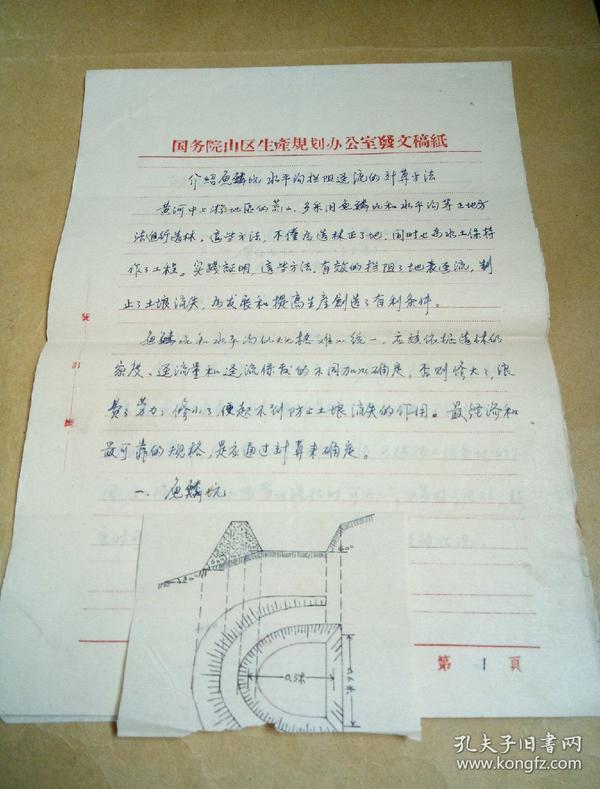 国务院山区生產規划办公室發文稿紙
介紹魚鱗坑水平沟拦阻迳流的计算方法
黄河中上游地区的荒山，多采用魚鱗坑和水平沟等土地方
法進行造林。这些方法，不僅為造林正了地，同时也為水土保持
作了工程。实践証明，这些方法，有效的拦阻了地表迳流，制
止了土壤流失，為发展和提高生產創造了有利条件。
魚鱗坑和水平沟的規格难以统一，应該依据造林的
密度、迳流量和迳流係数的不同加以确定，否则修大了，浪
费了劳力；修小了，便起不到防止土壤流失的作用。最经济和
最可靠的规格，是应通过计算来确定。
一、魚鱗坑
裝
訂
線
0.3米
0.6米
第 1 頁
孔夫子旧书网
www.kongfz.com